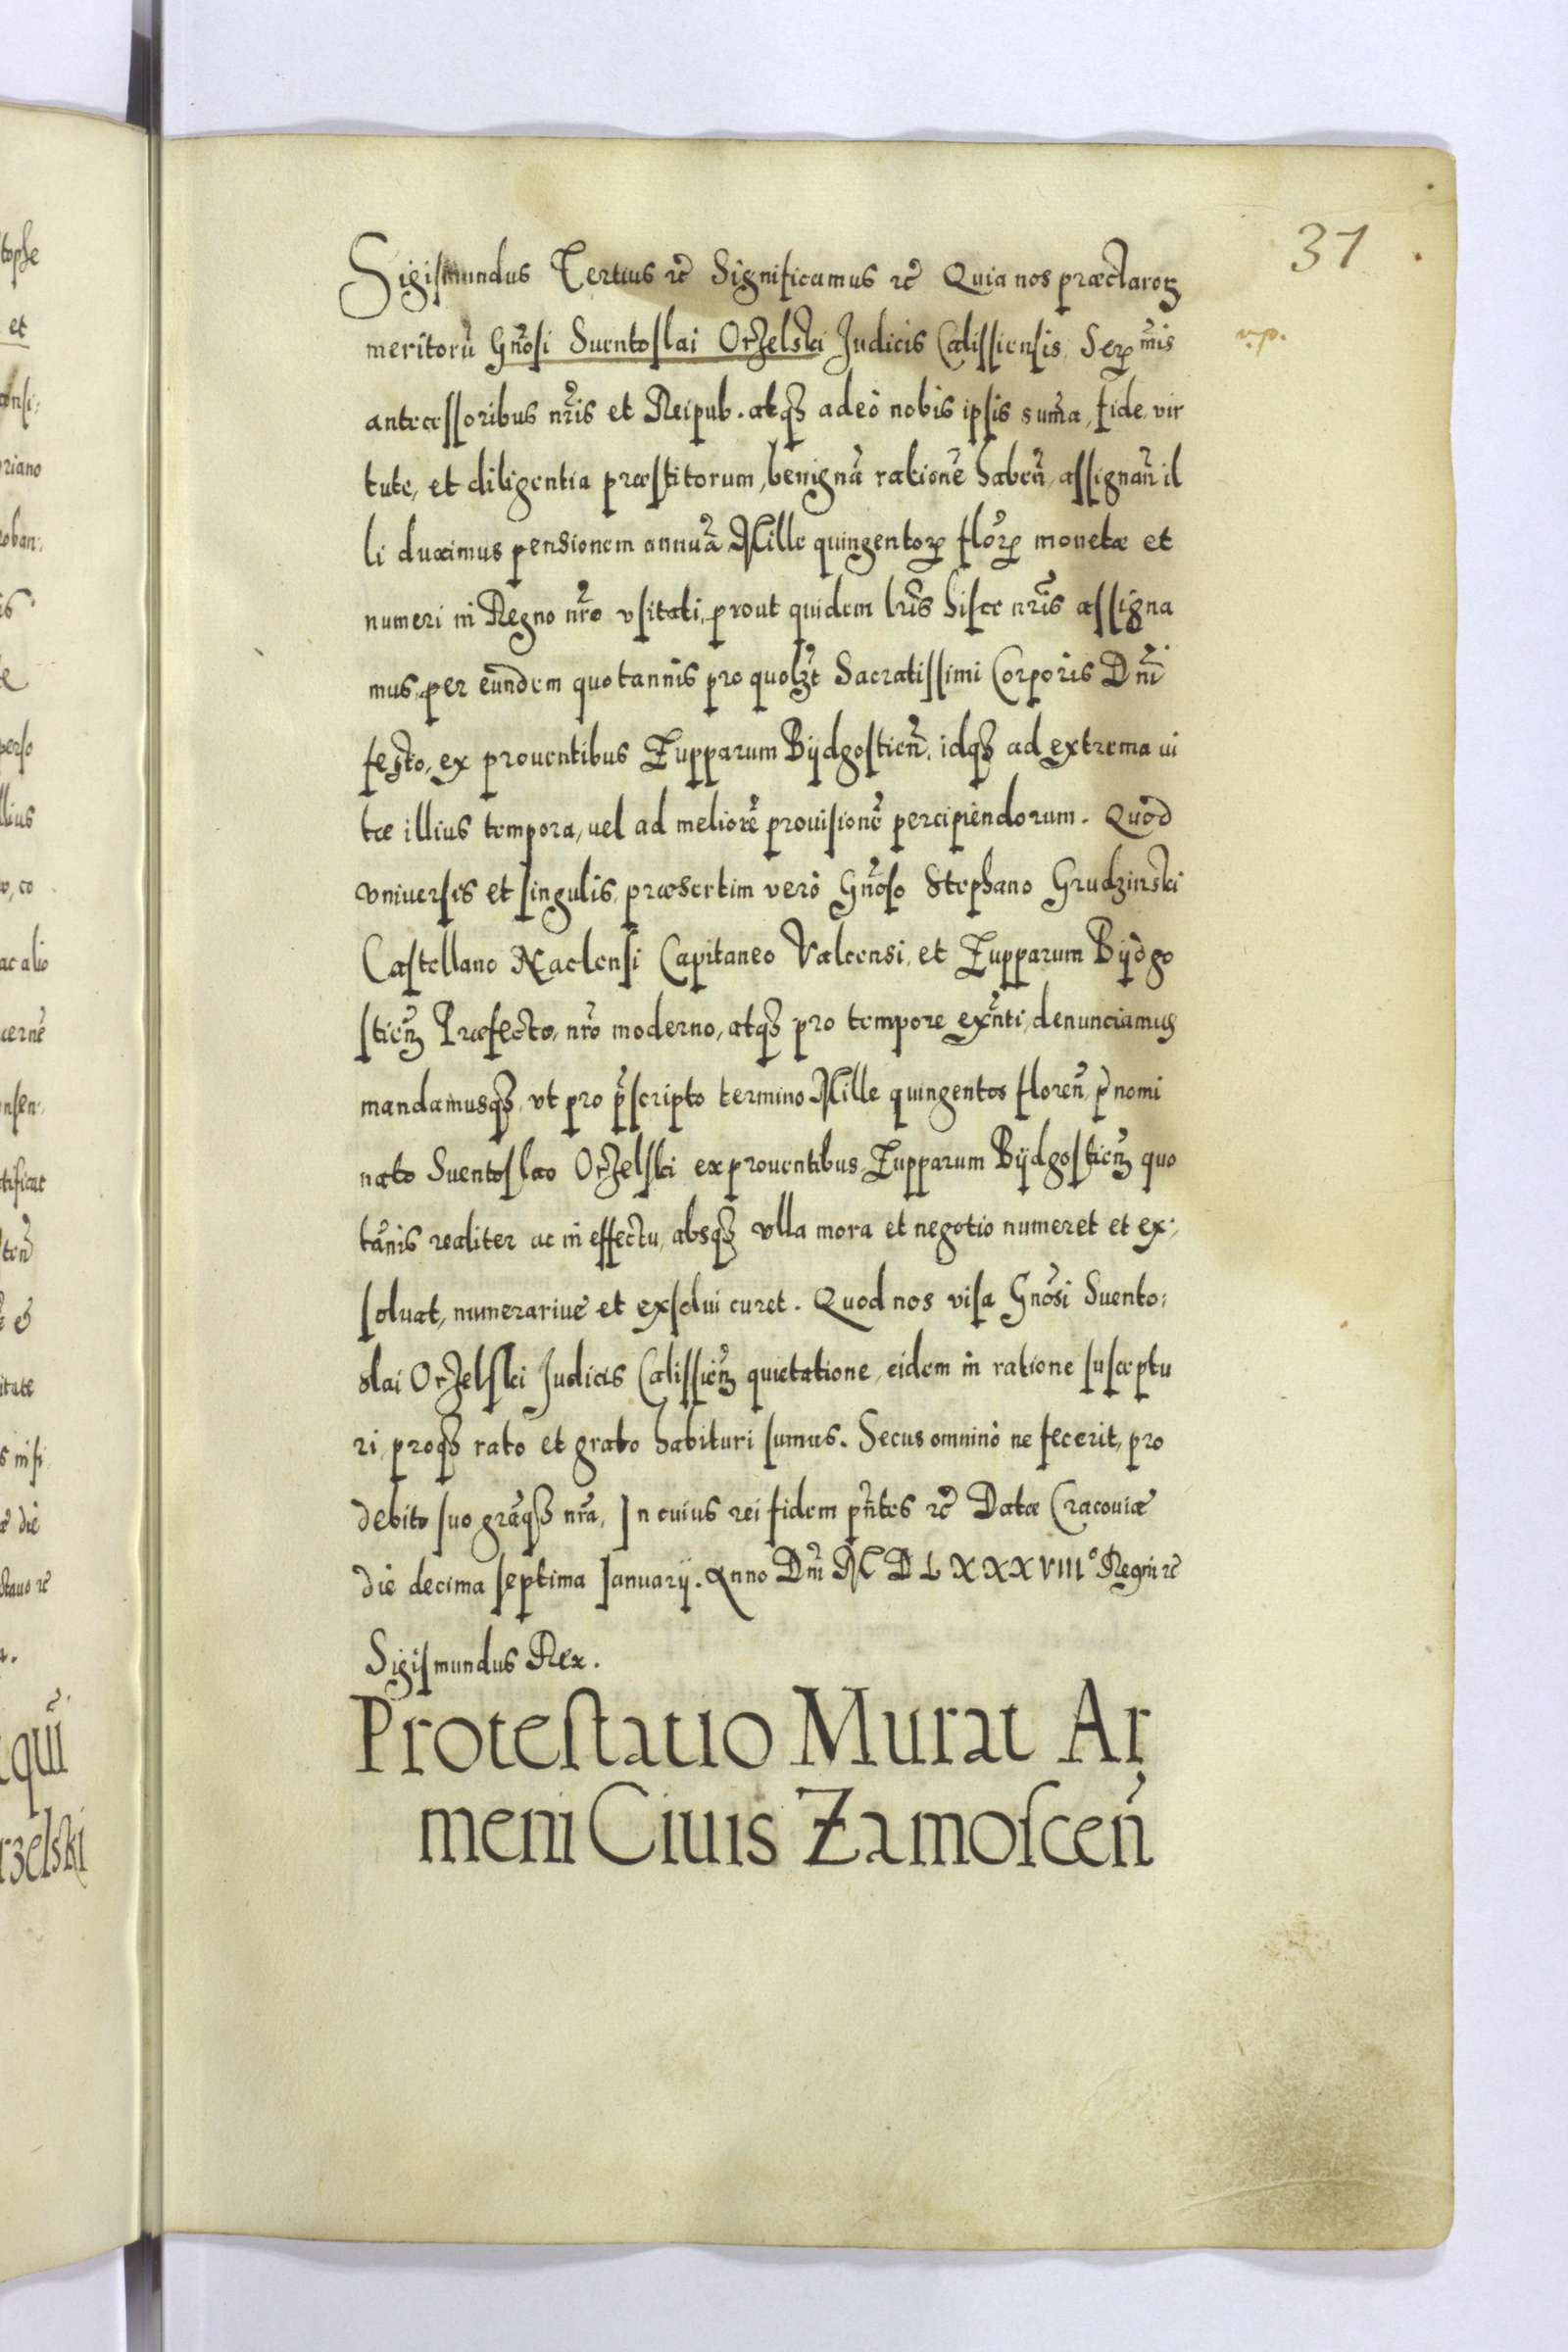 31
Sigismundus Tertius ꝛc̃ Significamus ꝛc̃ Quia nos præclaroꝝ
meritorũ Gn̄osi Suentoslai Orzelski Judicis Calissiensis, Sereᵐⁱˢ
v.p.
antecessoribus nr̃is et Reipub. atqꝫ adeò nobis ipsis sum̃a, fide, vir
tute, et diligentia præstitorum, benignã rationẽ habeñ, assignañ il
li duximus pensionem annuã Mille quingentoꝝ floꝝ monetæ et
numeri in Regno nr̃o vsitati, prout quidem lr̃is hisce nr̃is assigna
mus, per eundem quotannis pro quolꝫt Sacratissimi Corporis Dn̄i
festo, ex prouentibus Zupparum Bÿdgostien̄, idqꝫ ad extrema ui
tæ illius tempora, uel ad meliorẽ prouisionẽ percipiendorum. Quod
vniuersis et singulis, præsertim verò Gn̄oso Stephano Grudzinski
Castellano Naclensi Capitaneo Valcensi, et Zupparum Bÿdgo
stien̄ Præfecto, nr̃o moderno, atqꝫ pro tempore exn̄ti, denunciamus
mandamusqꝫ, vt pro p̃scripto termino Mille quingentos floren̄, p̃nomi
nato Suentoslao Orzelski ex prouentibus Zupparum Bÿdgostien̄ quo
tãnis realiter ac in effectu, absqꝫ vlla mora et negotio numeret et ex:
soluat, numerariue et exsolui curet. Quod nos visa Gn̄osi Suento:
slai Orzelski Judicis Calissien̄ quietatione, eidem in ratione susceptu
ri, proqꝫ rato et grato habituri sumus. Secus omninò ne fecerit, pro
debito suo grãqꝫ nr̃a, In cuius rei fidem pn̄tes ꝛc̃ Datæ Cracouiæ
die decima septima Januarÿ. Anno Dn̄i M D L XXXVIII° Regni ꝛc̃
Sigismundus Rex.
Protestatio Murat Ar
meni Ciuis Zamoscen̄